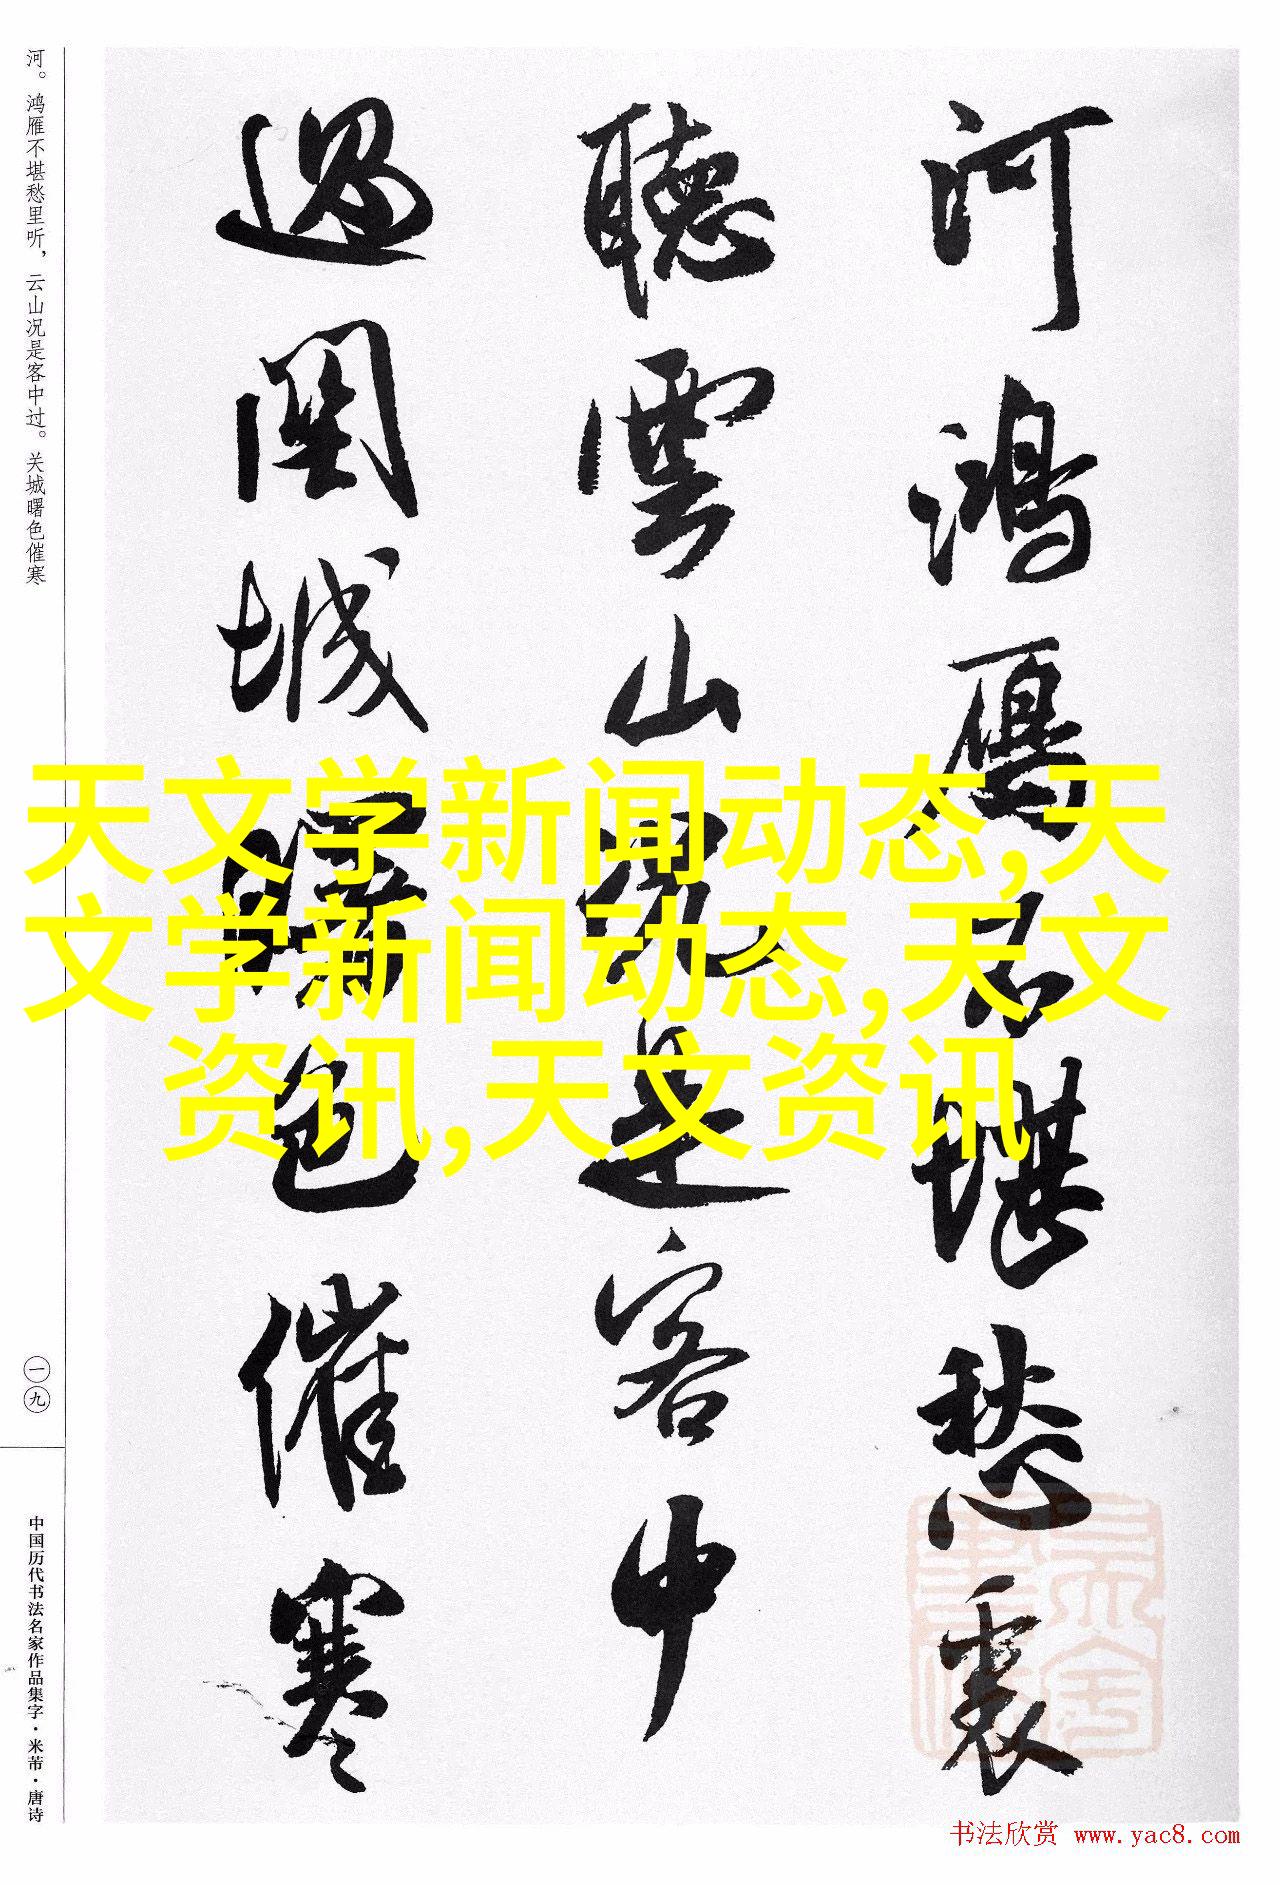 河鴻雁不堪愁裏
聽雲山況是客中
過關城曙色催寒
河。鸿雁不堪愁里听，云山况是客中过。关城曙色催寒
一九
中国历代书法名家作品集字·米芾·唐诗
天文学新闻动态,天
文学新闻动态,天文
资讯,天文资讯
书法欣赏 www.yac8.com